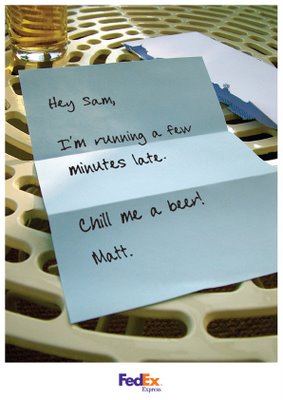 Hey Sam,
I'm running a few
minutes late.
Chill me a beer!
Matt.
FedEx
Express